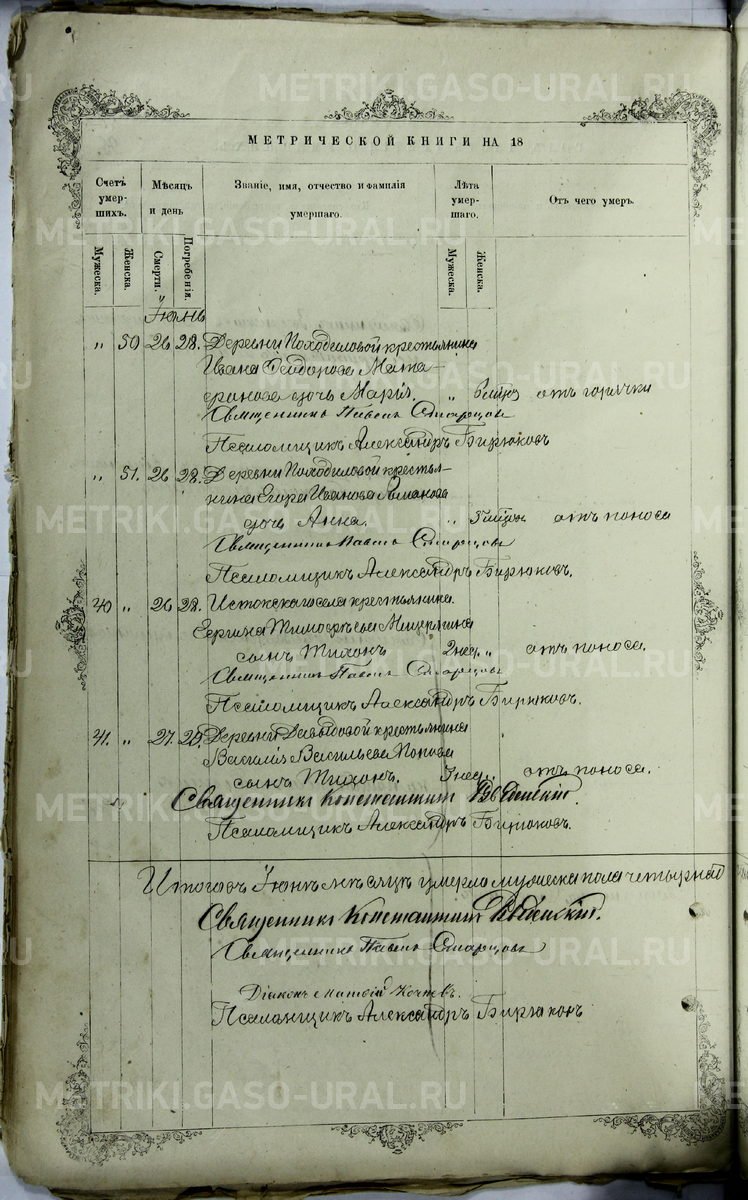 МЕТРИЧЕСКОЙ КНИГИ НА 18
Счетъ умершихъ.
Мѣсяцъ и день
Званіе, имя, отчество и фамилія умершаго.
Лѣта умершаго.
Отъ чего умеръ.
Мужеска.
Женска.
Смерти.
Погребенія.
Мужеска.
Женска.
Іюнь
„ 50 26 28. Деревни Походиловой крестьянина
Ивана Ѳеодорова Мата-
фонова дочь Марія. „ отъ горячки
Священникъ Павелъ Старцовъ
Псаломщикъ Александръ Бирюковъ
„ 51. 26 28. Деревни Походиловой крестья-
нина Егора Иванова
дочь Анна. „ отъ поноса
Священникъ Павелъ Старцовъ
Псаломщикъ Александръ Бирюковъ.
40 „ 26 28. Истокскаго села крестьянина
Тимоѳѣева
сынъ Тихонъ 2 нед. „ отъ поноса.
Священникъ Павелъ Старцовъ
Псаломщикъ Александръ Бирюковъ.
41. „ 27. Деревни Давыдовой крестьянина
Василія Васильева Попова
сынъ Тихонъ. 3 нед. отъ поноса.
Священникъ Константинъ
Псаломщикъ Александръ Бирюковъ.
Итого въ Іюнѣ мѣсяцѣ умерло мужеска пола
Священникъ Константинъ
Священникъ Павелъ Старцовъ
Діаконъ
Псаломщикъ Александръ Бирюковъ
METRIKI.GASO-URAL.RU